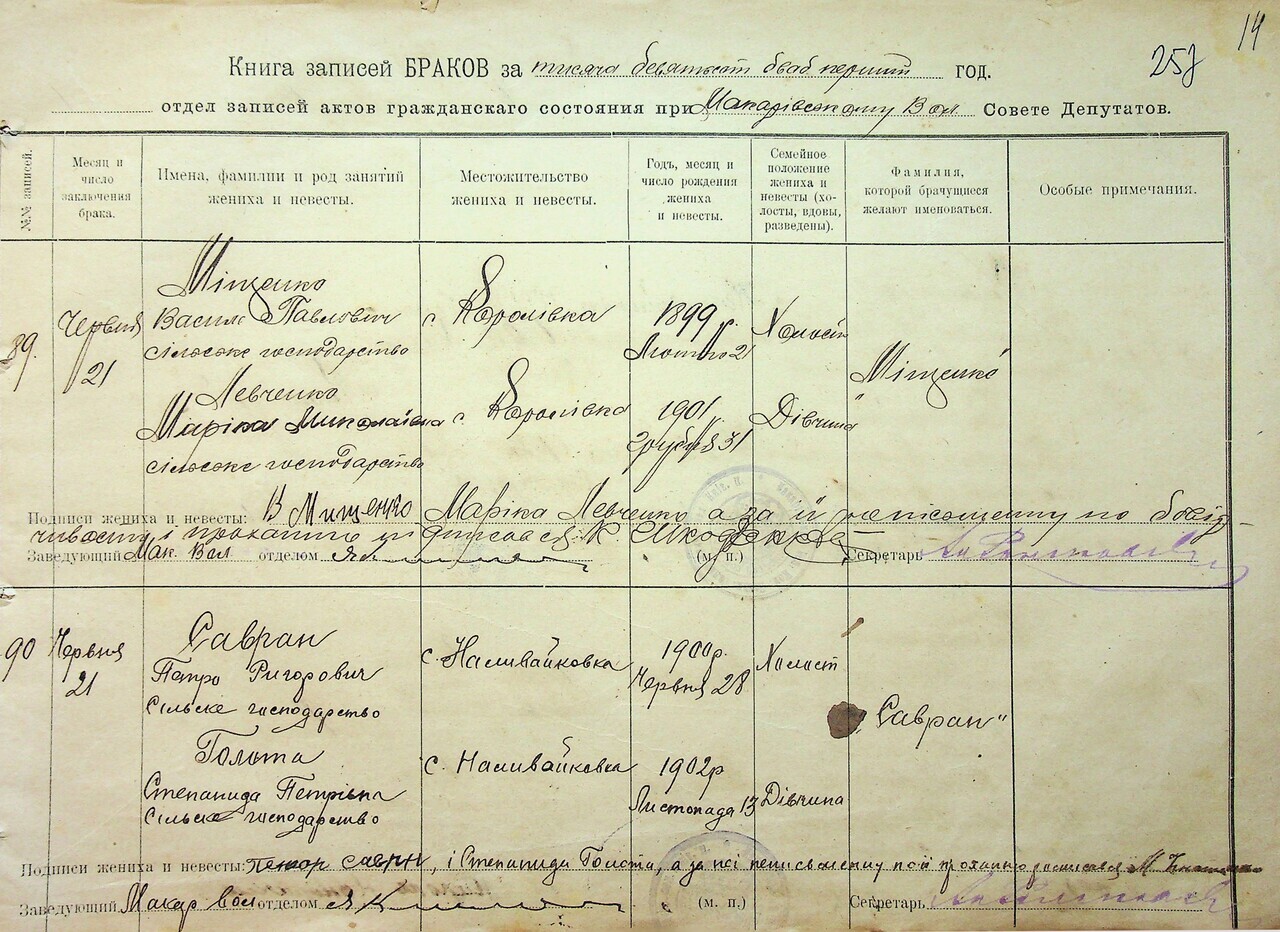 14
257
Книга записей БРАКОВ за тисяча девятьст двад. перший год.
отдел записей актов гражданскаго состояния при Макарівському Вол Совете Депутатов.
№№ записей.
Месяц и число заключения брака.
Имена, фамилии и род занятий жениха и невесты.
Местожительство жениха и невесты.
Годъ, месяц и число рождения жениха и невесты.
Семейное положение жениха и невесты (холосты, вдовы, разведены).
Фамилия, которой брачущиеся желают именоваться.
Особые примечания.
89.
Червня 21
Міщенко
Василь Павлович
сільське господарство
с. Королівка
1899 р.
Лютого 21
Холост
Міщенко
Левченко
Маріка Миколаївна
сільське господарство
с. Королівка
1901
грудня 31
Дівчина
Подписи жениха и невесты: В Мищенко Маріка Левченко а за її неписьменну по довір
чивости і проханню К. Шкоденко
Заведующий Мак. Вол отделом
(м. п.)
Секретарь
90
Червня 21
Савран
Петро Ригорович
Сільске господарство
с. Наливайковка
1900р.
Червня 28
Холост
„Савран"
Голота
Степанида Петрівна
Сільске господарство
с. Наливайковка
1902р
Листопада 13
Дівчина
Подписи жениха и невесты: савран, і Степанида Голота, а за неї неписьменну по її проханню росписався М.
Заведующий Макар вол отделом
(м. п.)
Секретарь